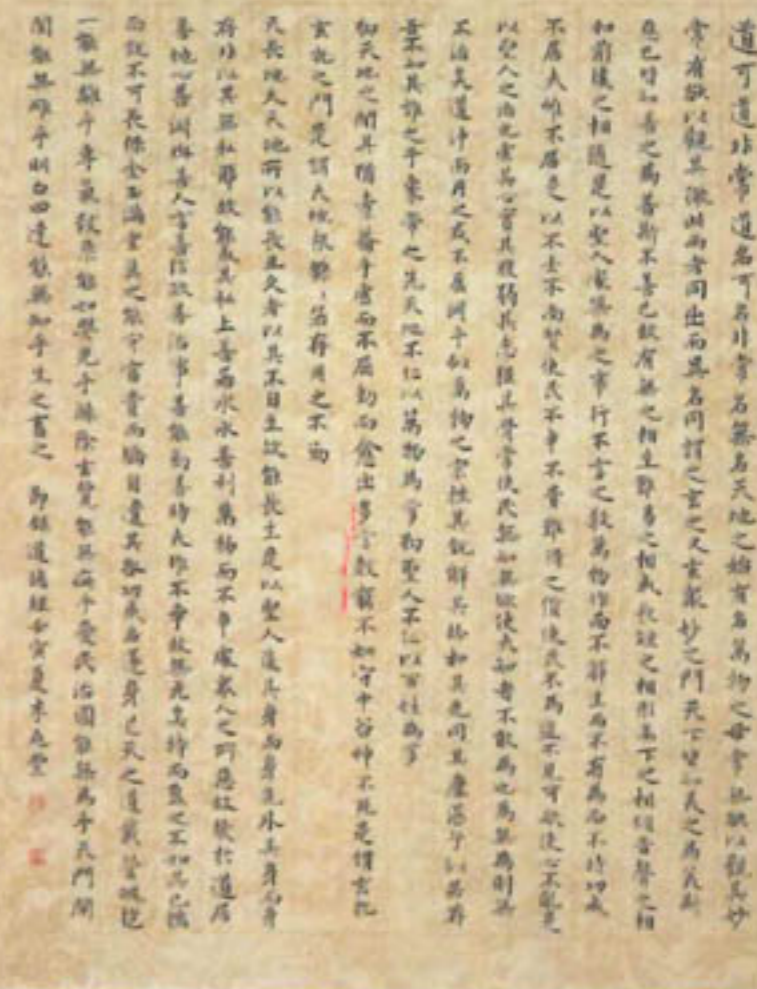 道可道非常道名可名非常名無名天地之始有名萬物之母常無欲以觀其妙
常有欲以觀其徼此兩者同出而異名同謂之玄之又玄眾妙之門天下皆知美之為美斯
惡已皆知善之為善斯不善已故有無之相生難易之相成長短之相形高下之相傾音聲之相
和前後之相隨是以聖人處無為之事行不言之教萬物作而不辭生而不有為而不恃功成
不居夫惟不居是以不去不尚賢使民不爭不貴難得之貨使民不為盜不見可欲使心不亂是
以聖人之治也虛其心實其腹弱其志強其骨常使民無知無欲使夫知者不敢為也為無為則無
不治矣道沖而用之或不盈淵乎似萬物之宗挫其銳解其紛和其光同其塵湛乎似若存
吾不知其誰之子象帝之先天地不仁以萬物為芻狗聖人不仁以百姓為芻
狗天地之間其猶橐籥乎虛而不屈動而愈出多言數窮不如守中谷神不死是謂玄牝
玄牝之門是謂天地根綿綿若存用之不勤
天長地久天地所以能長且久者以其不自生故能長生是以聖人後其身而身先外其身而身
存非以其無私耶故能成其私上善若水水善利萬物而不爭處眾人之所惡故幾於道居
善地心善淵與善人言善信政善治事善能動善時夫惟不爭故無尤矣持而盈之不如其已揣
而銳不可長保金玉滿堂莫之能守富貴而驕自遺其咎功成名遂身退天之道載營魄抱
一能無離乎專氣致柔能如嬰兒乎滌除玄覽能無疵乎愛民治國能無為乎天門開
闔能無雌乎明白四達能無知乎生之畜之 節錄道德經壬寅夏末